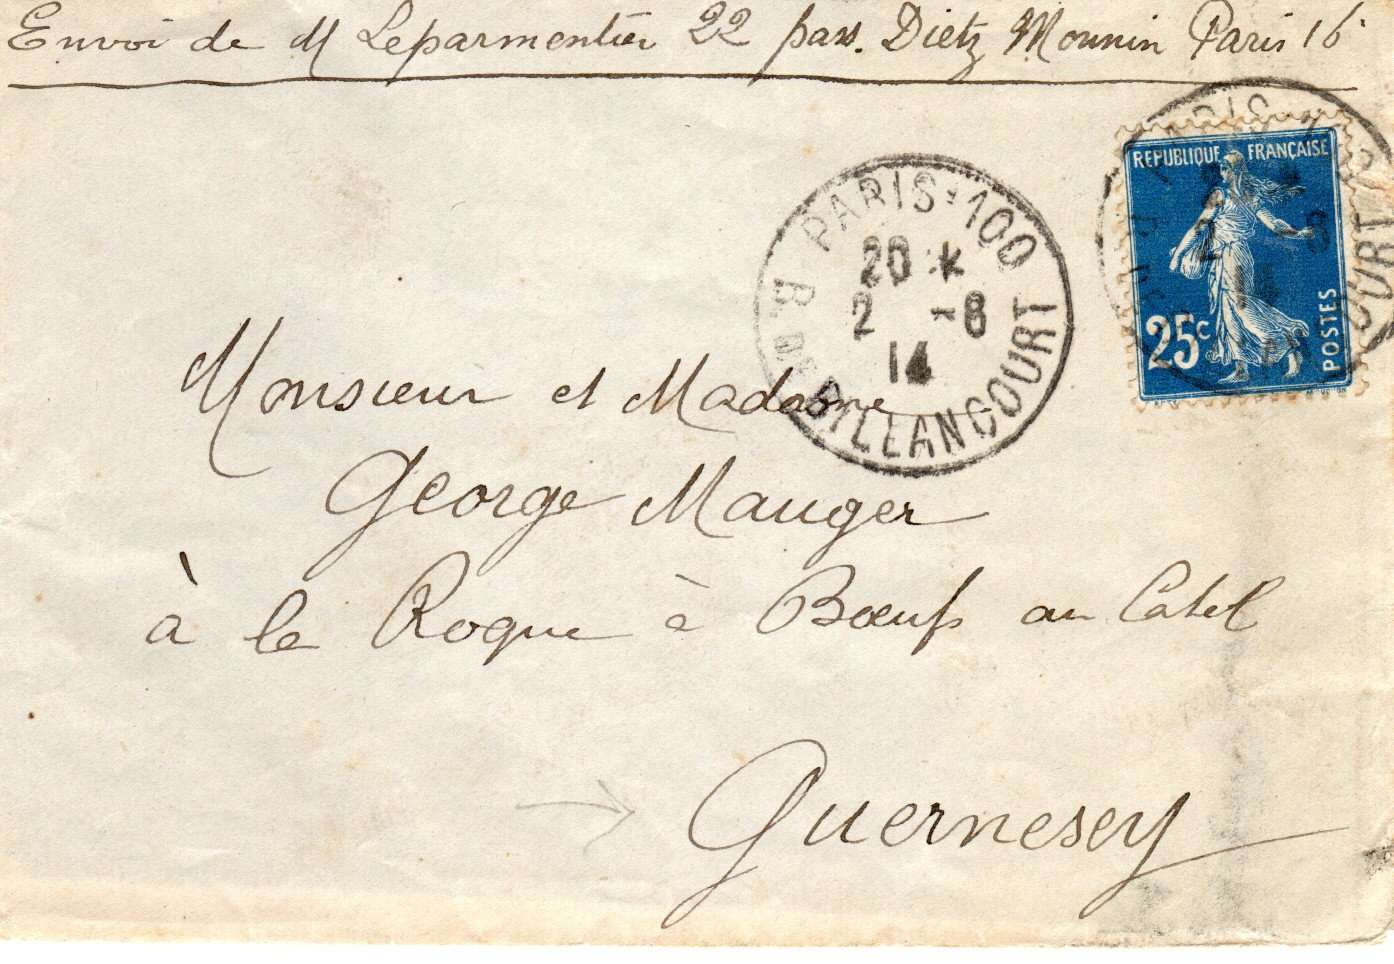 Envoi de M Leparmentier 22 pass. Dietz Monnin Paris 16
PARIS·100
R. DE BILLANCOURT
20 *
2 -8
14
REPUBLIQUE FRANÇAISE
25c
POSTES
PARIS
COURT
2 -8
14
Monsieur et Madame
George Mauger
à le Roque à Bœufs au Catel
Guernesey